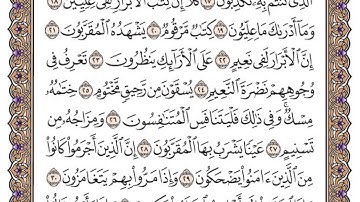 ٱلَّذِى كُنتُم بِهِۦ تُكَذِّبُونَ ١٧ كَلَّآ إِنَّ كِتَٰبَ ٱلْأَبْرَارِ لَفِى عِلِّيِّينَ ١٨
وَمَآ أَدْرَىٰكَ مَا عِلِّيُّونَ ١٩ كِتَٰبٌ مَّرْقُومٌ ٢٠ يَشْهَدُهُ ٱلْمُقَرَّبُونَ ٢١
إِنَّ ٱلْأَبْرَارَ لَفِى نَعِيمٍ ٢٢ عَلَى ٱلْأَرَآئِكِ يَنظُرُونَ ٢٣ تَعْرِفُ فِى
وُجُوهِهِمْ نَضْرَةَ ٱلنَّعِيمِ ٢٤ يُسْقَوْنَ مِن رَّحِيقٍ مَّخْتُومٍ ٢٥ خِتَٰمُهُۥ
مِسْكٌ ۚ وَفِى ذَٰلِكَ فَلْيَتَنَافَسِ ٱلْمُتَنَٰفِسُونَ ٢٦ وَمِزَاجُهُۥ مِن
تَسْنِيمٍ ٢٧ عَيْنًا يَشْرَبُ بِهَا ٱلْمُقَرَّبُونَ ٢٨ إِنَّ ٱلَّذِينَ أَجْرَمُوا۟ كَانُوا۟
مِنَ ٱلَّذِينَ ءَامَنُوا۟ يَضْحَكُونَ ٢٩ وَإِذَا مَرُّوا۟ بِهِمْ يَتَغَامَزُونَ ٣٠